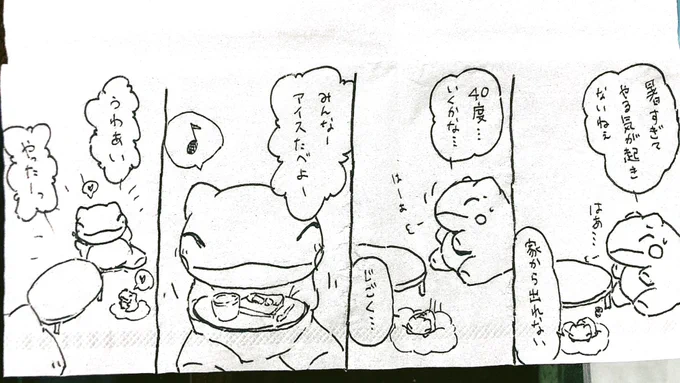 暑すぎて
やる気が起き
ないねぇ
はあ…
家から出れない
40度…
いくかな…
はーぁ
じごく…
みんなー
アイスたべよー
うわあい
やったーっ